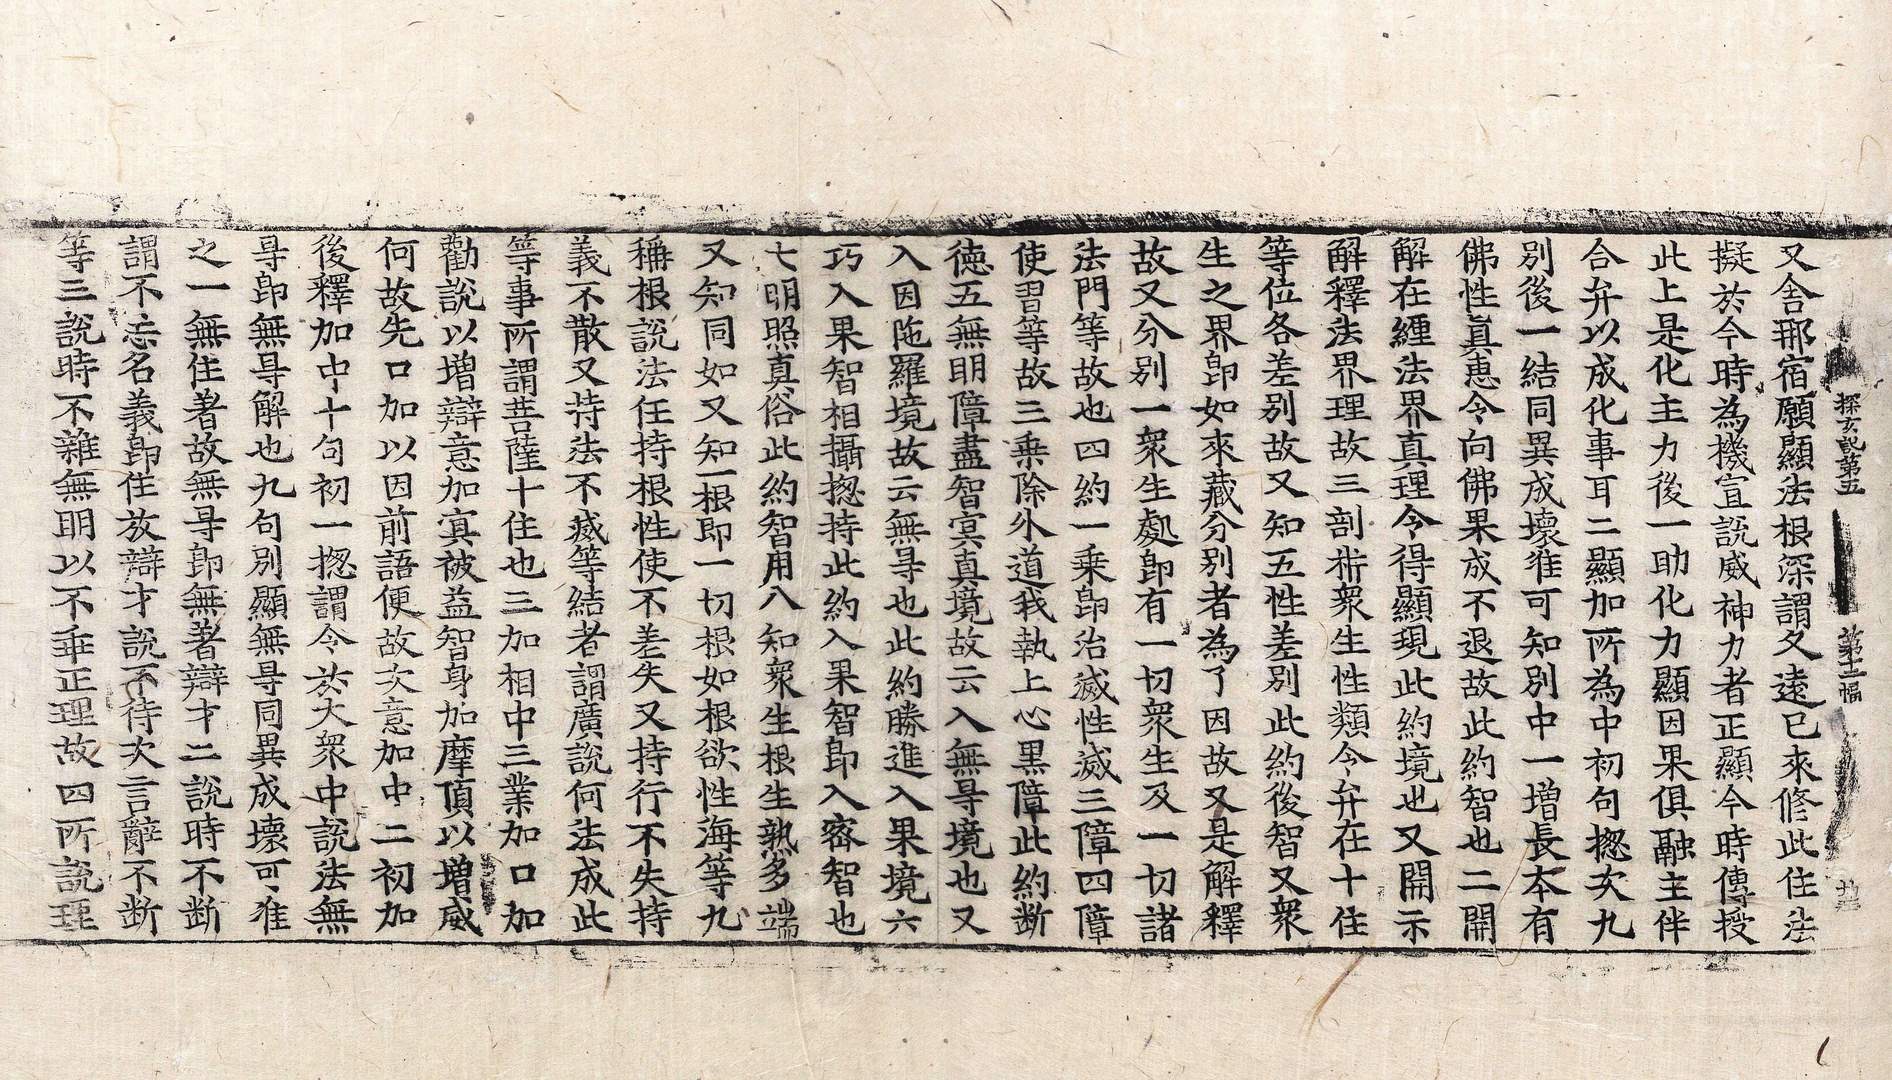 探玄記第五　第十二幅
又舍那宿願顯法根深謂久遠已來修此住法
擬於今時為機宣說威神力者正顯今時傳授
此上是化主力後一助化力顯因果俱融主伴
合弁以成化事耳二顯加所為中初句揔次九
別後一結同異成壞准可知別中一增長本有
佛性真恵令向佛果成不退故此約智也二開
解在纏法界真理令得顯現此約境也又開示
解釋法界理故三剖析衆生性類令弁在十住
等位各差別故又知五性差別此約後智又衆
生之界即如來藏分別者為了因故又是解釋
故又分別一衆生處即有一切衆生及一切諸
法門等故也四約一乗即治滅性滅三障四障
使習等故三乗除外道我執上心黒障此約断
徳五無明障盡智冥真境故云入無㝵境也又
入因陁羅境故云無㝵也此約勝進入果境六
巧入果智相攝揔持此約入果智即入宻智也
七明照真俗此約智用八知衆生根生熟多端
又知同如又知一根即一切根如根欲性海等九
稱根說法任持根性使不差失又持行不失持
義不散又持法不滅等結者謂廣說何法成此
等事所謂菩薩十住也三加相中三業加口加
勸說以增辯意加冥被益智身加摩頂以增威
何故先口加以因前語便故次意加中二初加
後釋加中十句初一揔謂令於大衆中説法無
㝵即無㝵解也九句別顯無㝵同異成壞可准
之一無住著故無㝵即無著辯才二說時不断
謂不忘名義即住放辯才說不待次言辭不断
等三說時不雜無明以不乖正理故四所說理